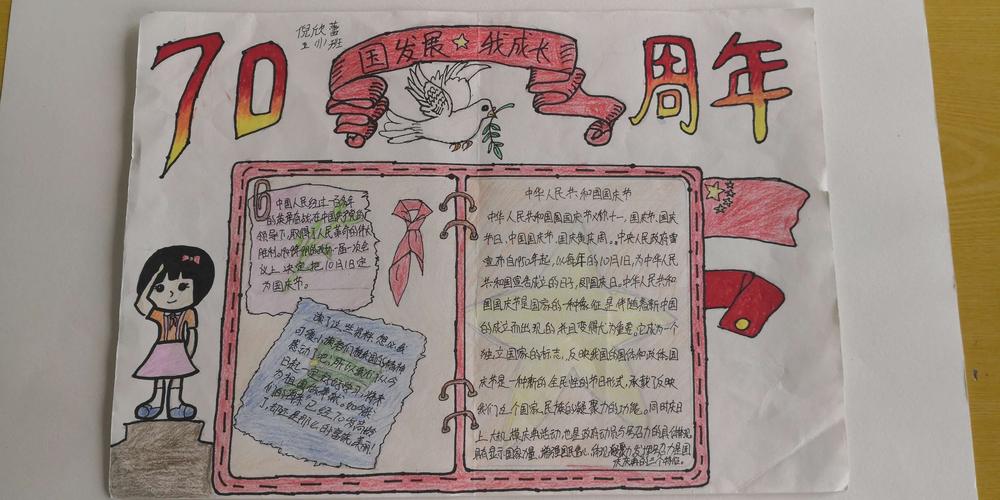 70
倪欣蕾
五(1)班
国发展☆我成长
周年
中国人民经过一百多年
的英革奋战,在中国共产党的
领导下,取得了人民革命的伟大
胜利。
一届一次会
议上,决定把10月1日定
为国庆节。
读了这些资料,想必
感动了吧!所以我们从今
日起一定好好学习,将来
为祖国做贡献。
中华人民共和国国庆节
中华人民共和国国国庆节又称十一,国庆节,国庆
节日,中国国庆节,国庆黄庆周。中央人民政府宣
宣布自1950年起,以每年的10月1日,为中华人民
共和国宣告成立的日子,即国庆日。中华人民共和
国国庆节是国家的一种象征,是伴随着新中国
的成立而出现的,并且变得尤为重要。它成为一个
独立国家的标志,反映我国的国体和政体。国
庆节是一种新的、全民性的节日形式,承载了反映
我们这个国家、民族的凝聚力的功能。同时庆日
上大规模庆典活动,也是政府动员与号召力的具体体现
显示国家力量、增强国民信心,体现凝聚力,发挥号召力是国
庆庆典的三个特征。